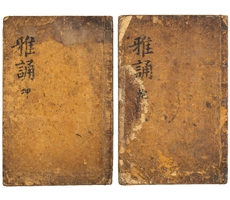 雅誦 坤
雅誦 乾